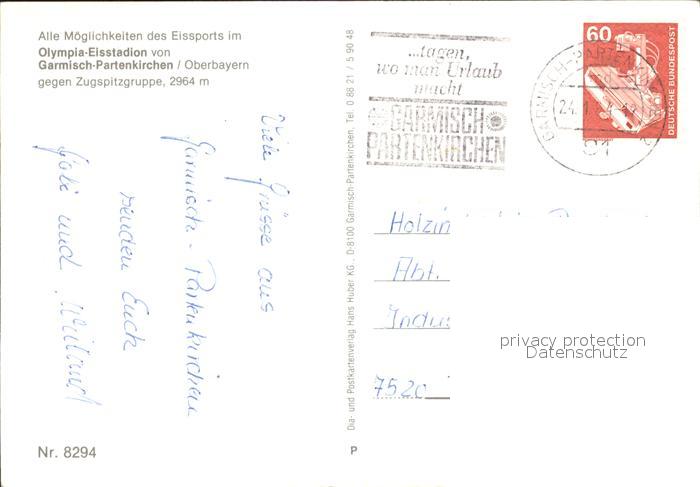 Alle Möglichkeiten des Eissports im
Olympia-Eisstadion von
Garmisch-Partenkirchen / Oberbayern
gegen Zugspitzgruppe, 2964 m
Viele Grüsse aus
Garmisch - Partenkirchen
senden Euch
und
Nr. 8294
Dia- und Postkartenverlag Hans Huber KG., D-8100 Garmisch-Partenkirchen, Tel. 0 88 21 / 5 90 48
P
...tagen,
wo man Urlaub
macht
GARMISCH
PARTENKIRCHEN
GARMISCH-PARTEN
81
60
DEUTSCHE BUNDESPOST
Holzin
Abt.
Indu
7520
privacy protection
Datenschutz